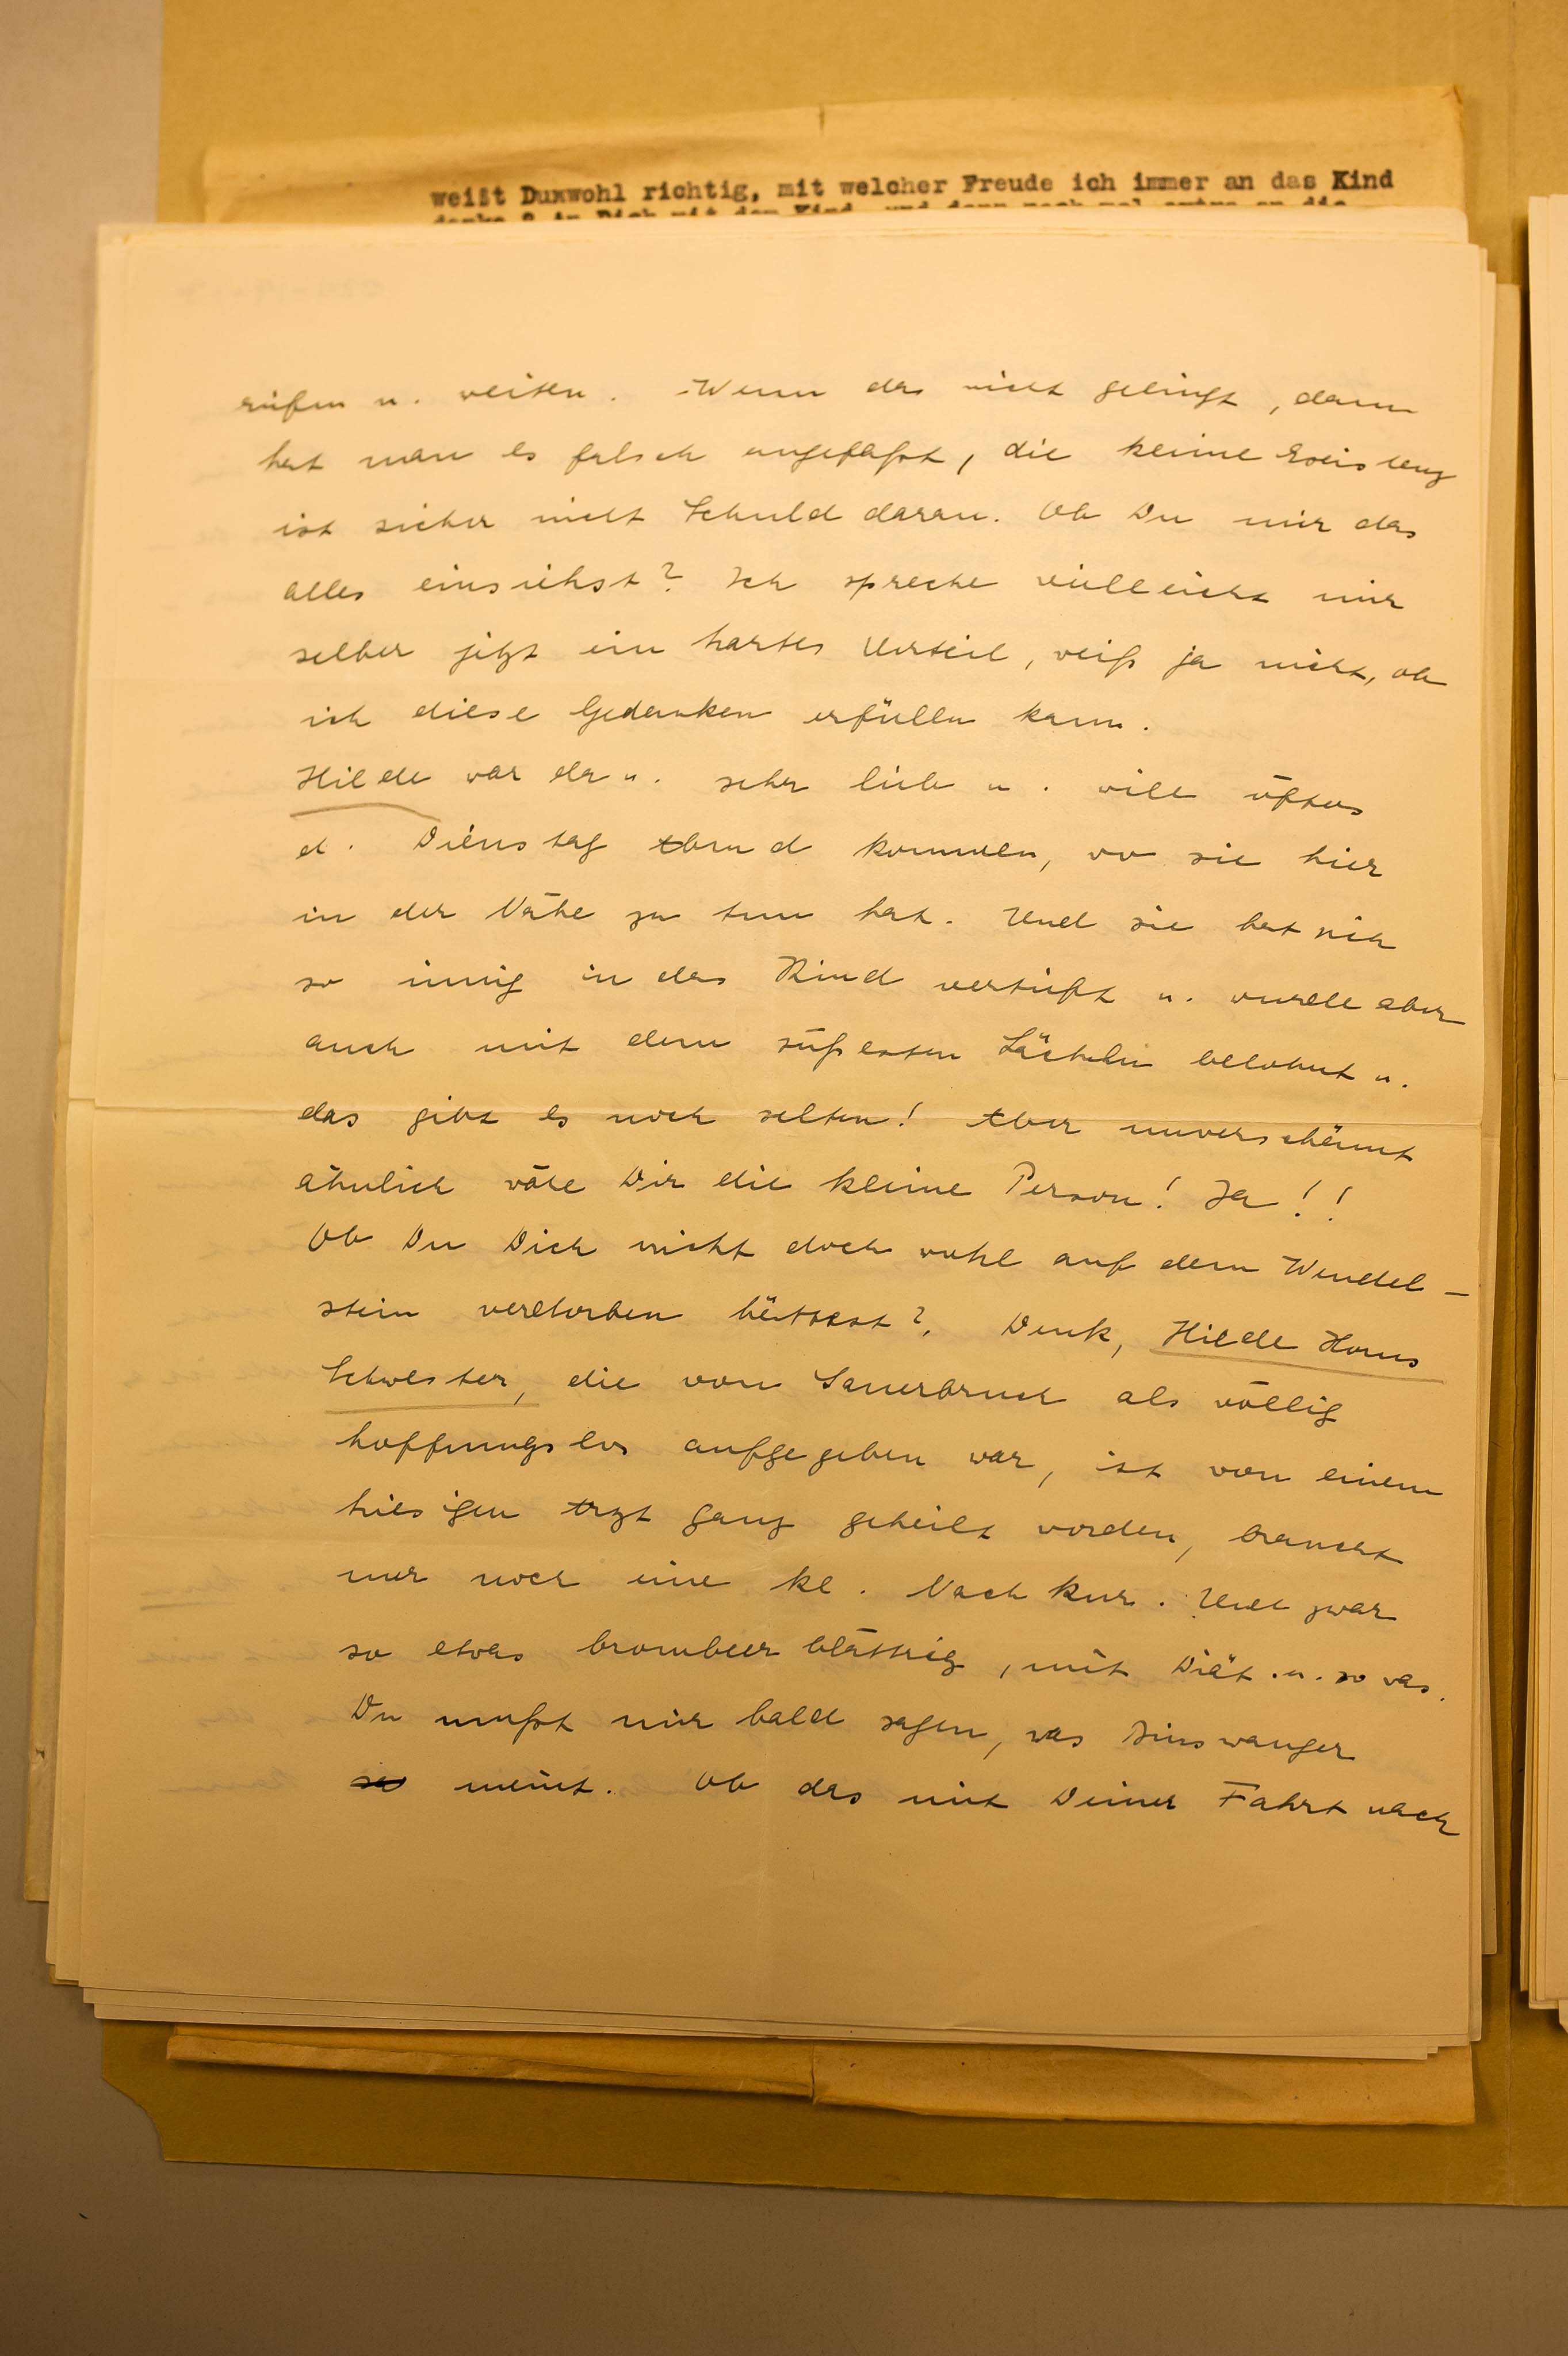 weißt Duxwohl richtig, mit welcher Freude ich immer an das Kind
reifen u. weiten. Wenn das nicht gelingt, dann
hat man es falsch angefaßt, die keine Existenz
ist sicher nicht Schuld daran. Ob Du mir das
alles einsiehst? Ich spreche vielleicht mir
selber jetzt ein hartes Urteil, weiß ja nicht, ob
ich diese Gedanken erfüllen kann.
Hilde war da u. sehr lieb u. will öfters
d. Dienstag Abend kommen, wo sie hier
in der Nähe zu tun hat. Und sie hat sich
so innig in das Kind vertieft u. wurde aber
auch mit dem süßesten Lächeln belohnt u.
das gibt es noch selten! Aber unverschämt
ähnlich wäre Dir die kleine Person! Ja!!
Ob Du Dich nicht doch wohl auf dem Wendel-
stein verdorben hättest? Denk, Hilde Horns
Schwester, die von Sauerbruch als völlig
hoffnungslos aufgegeben war, ist von einem
hiesigen Arzt ganz geheilt worden, braucht
nur noch eine kl. Nachkur. Und zwar
so etwas brombeerblättrig, mit Diät u. so was.
Du mußt mir bald sagen, was Binswanger
meint. Ob das mit Deiner Fahrt nach